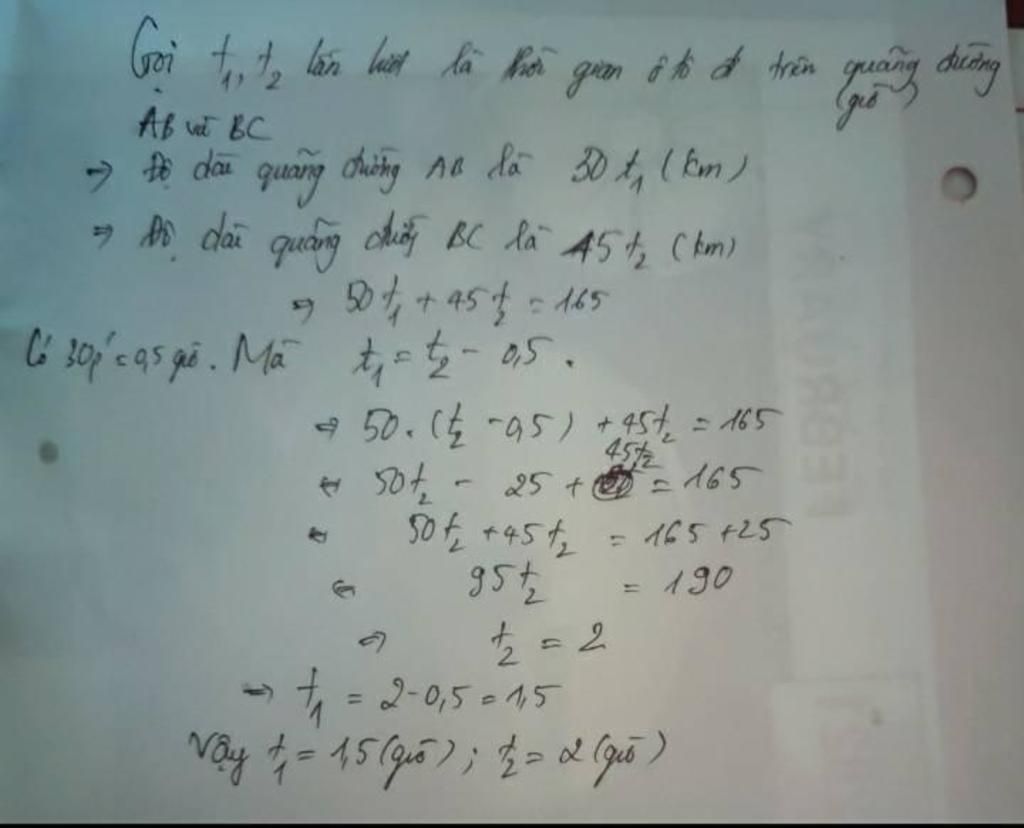 Gọi t₁, t₂ lần lượt là thời gian ô tô đi trên quãng đường
(giờ)
AB và BC
→ Độ dài quãng đường AB là 50t₁ (km)
⇒ Độ dài quãng đường BC là 45t₂ (km)
⇒ 50t₁ + 45t₂ = 165
Có 30p' = 0,5 giờ. Mà t₁ = t₂ - 0,5.
⇔ 50.(t₂ - 0,5) + 45t₂ = 165
45t₂
⇔ 50t₂ - 25 + = 165
⇔ 50t₂ + 45t₂ = 165 + 25
⇔ 95t₂ = 190
⇔ t₂ = 2
→ t₁ = 2 - 0,5 = 1,5
Vậy t₁ = 1,5 (giờ) ; t₂ = 2 (giờ)
FEBRUARY